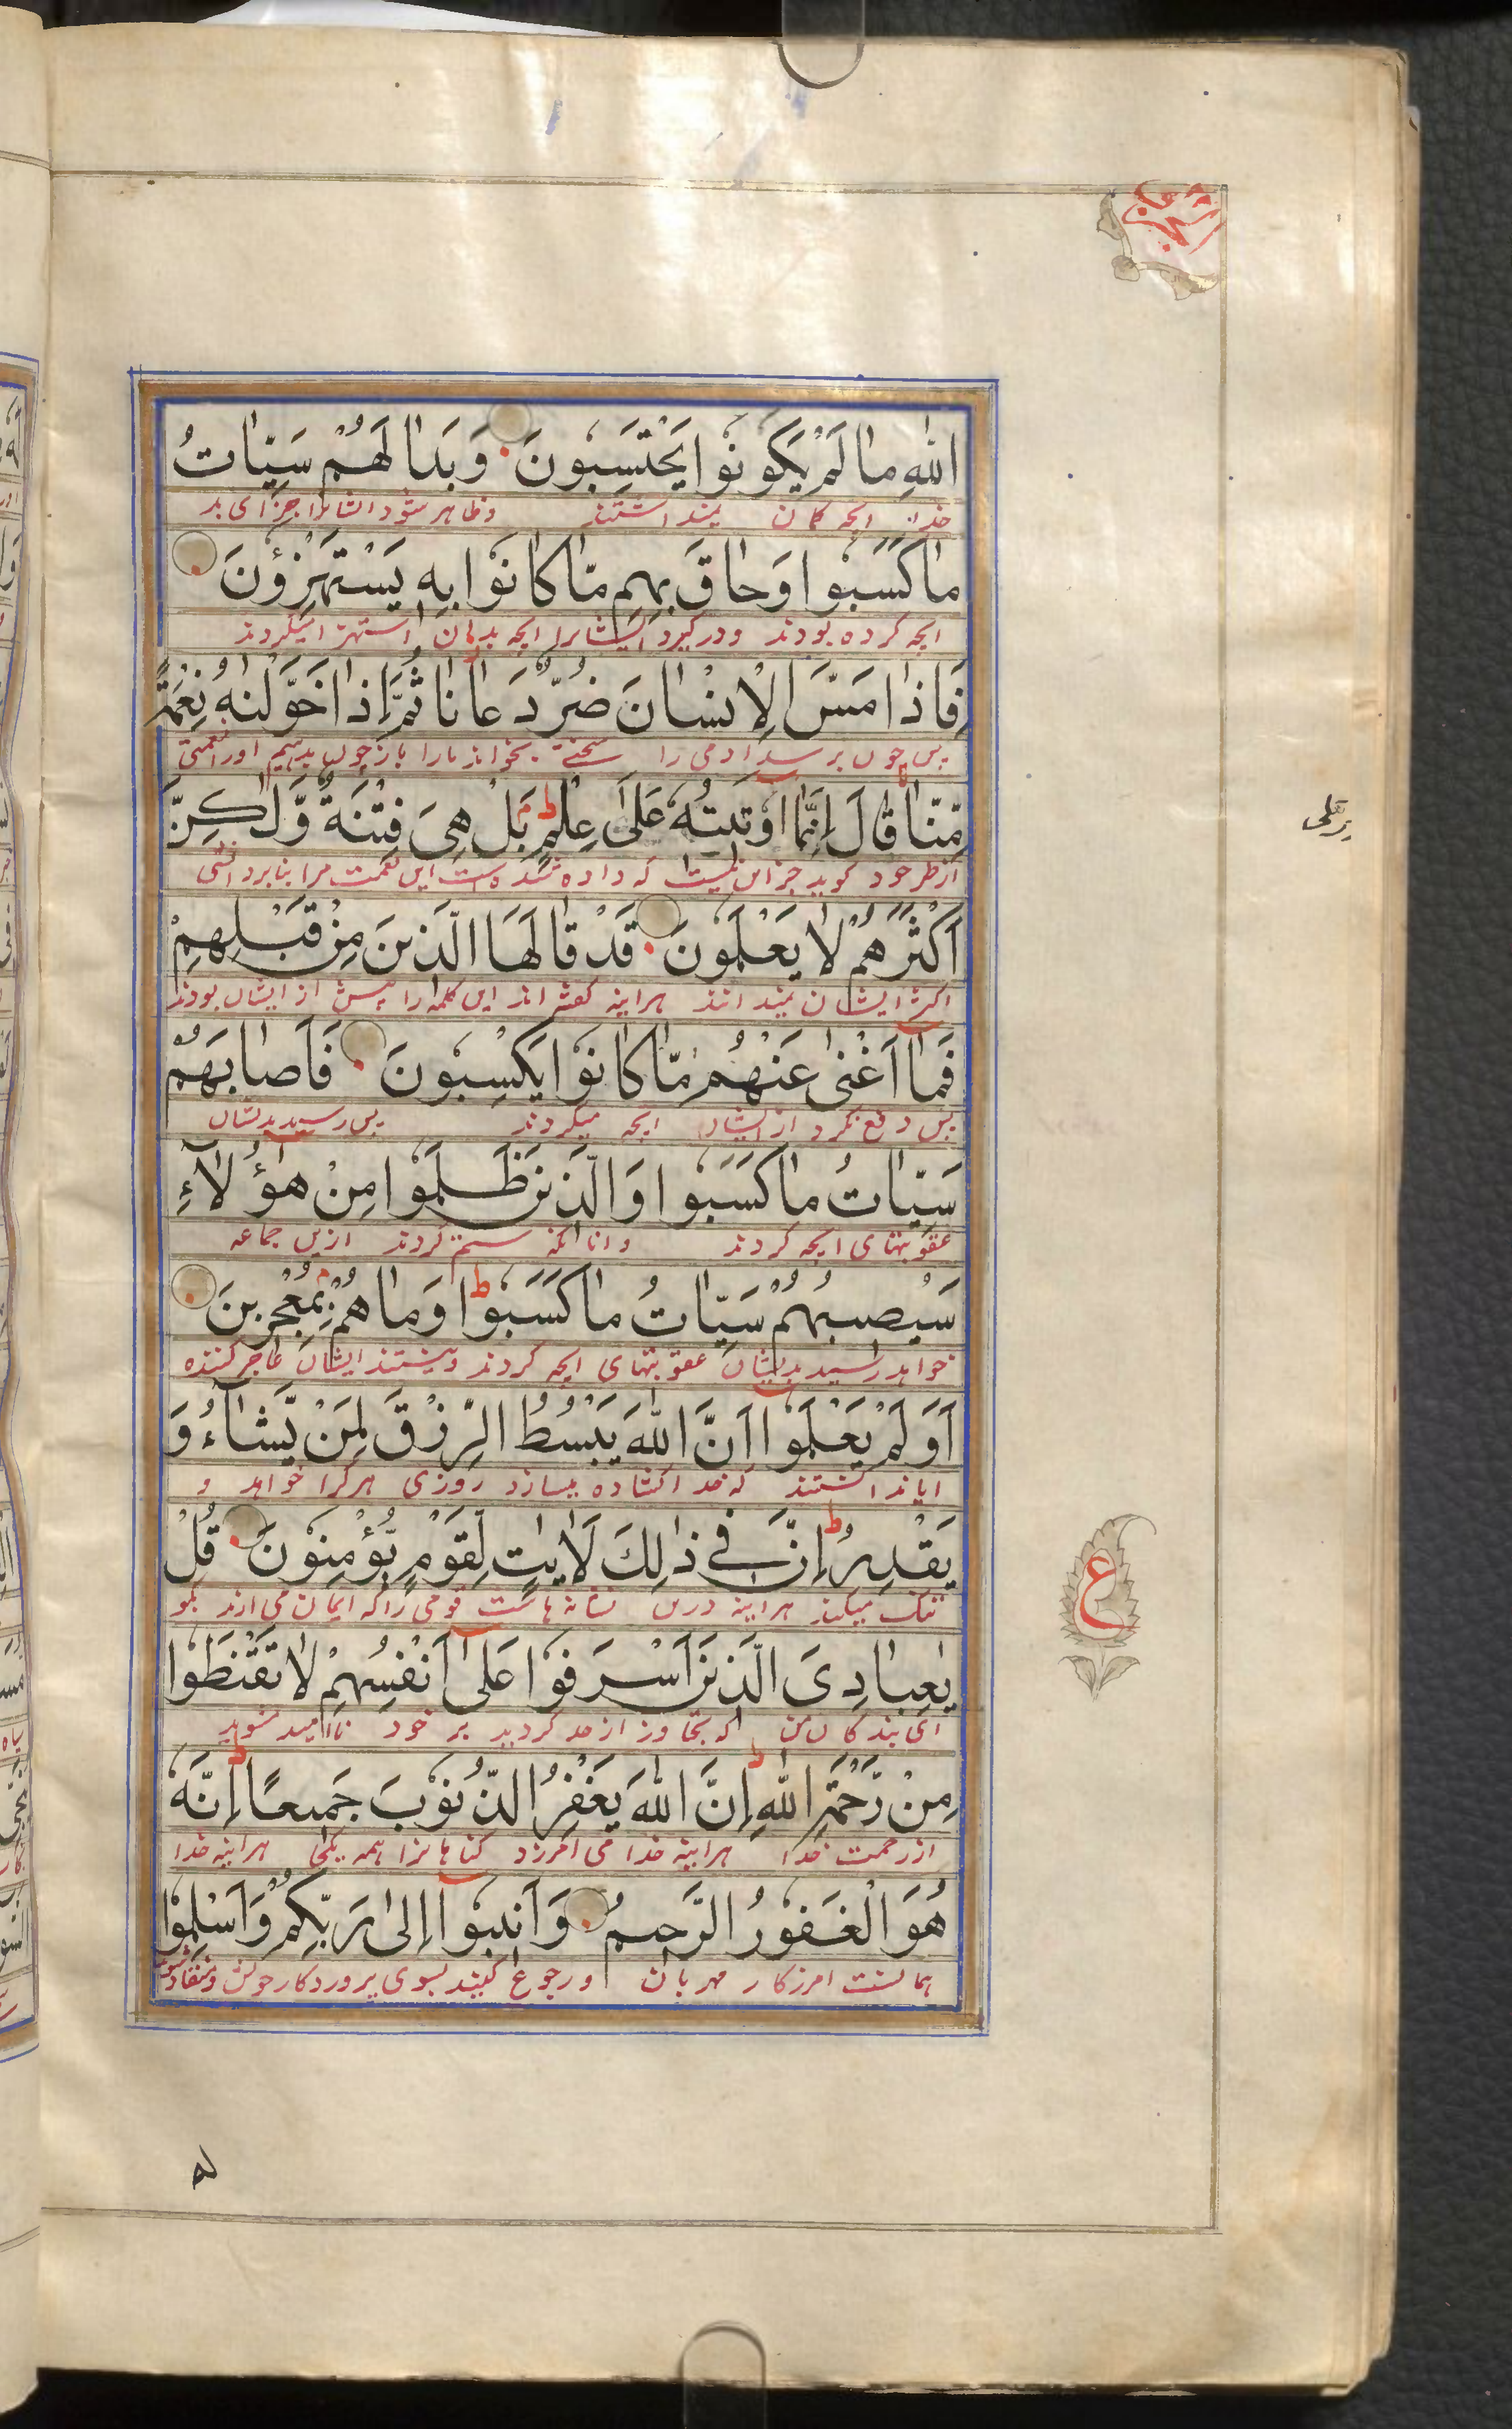 اللّٰهِ مَا لَمْ يَكُونُوْا يَحْتَسِبُونَ وَبَدَا لَهُمْ سَيِّاٰتُ
خدا انچه گمان نمیداشتند وظاهر شود ایشانرا جزای بد
مَا كَسَبُوا وَحَاقَ بِهِم مَّا كَانُوْا بِهِ يَسْتَهْزِؤُنَ
انچه کرده بودند ودرگیرد ایشانرا انچه بدان استهزا میکردند
فَاِذَا مَسَّ الْاِنْسَانَ ضُرٌّ دَعَانَا ثُمَّ اِذَا خَوَّلْنٰهُ نِعْمَةً
پس چون برسد ادمی را سختی بخواند مارا باز چون بدهیم اورا نعمتی
مِّنَّا قَالَ اِنَّمَا اُوْتِيْتُهٗ عَلٰى عِلْمٍ ط بَلْ هِىَ فِتْنَةٌ وَّلٰكِنَّ
از طرف خود گوید جز این نیست که داده شده است این نعمت مرا بنابر دانشی
اَكْثَرَهُمْ لَا يَعْلَمُونَ قَدْ قَالَهَا الَّذِينَ مِنْ قَبْلِهِمْ
اکثر ایشان نمیدانند هراینه گفته اند این کلمه را پیش از ایشان بودند
فَمَا اَغْنٰى عَنْهُمْ مَّا كَانُوْا يَكْسِبُونَ فَاَصَابَهُمْ
پس دفع نکرد از ایشان انچه میکردند پس رسید بدیشان
سَيِّاٰتُ مَا كَسَبُوا وَالَّذِينَ ظَلَمُوا مِنْ هٰؤُلَاءِ
عقوبتهای انچه کردند وانانکه ستم کردند ازین جماعه
سَيُصِيبُهُمْ سَيِّاٰتُ مَا كَسَبُوْا ط وَمَا هُمْ بِمُعْجِزِينَ
خواهد رسید بدیشان عقوبتهای انچه کردند ونیستند ایشان عاجز کننده
اَوَلَمْ يَعْلَمُوْا اَنَّ اللّٰهَ يَبْسُطُ الرِّزْقَ لِمَنْ يَّشَآءُ وَ
ایا ندانستند که خدا کشاده میسازد روزی هرکرا خواهد و
يَقْدِرُ ط اِنَّ فِي ذٰلِكَ لَاٰيٰتٍ لِّقَوْمٍ يُّؤْمِنُوْنَ قُلْ
تنگ میکند هراینه درین نشانه هاست قومی را که ایمان می ارند بگو
يٰعِبَادِىَ الَّذِيْنَ اَسْرَفُوْا عَلٰى اَنْفُسِهِمْ لَا تَقْنَطُوْا
ای بندگان من که تجاوز از حد کردید بر خود نا امید مشوید
مِنْ رَّحْمَةِ اللّٰهِ ط اِنَّ اللّٰهَ يَغْفِرُ الذُّنُوْبَ جَمِيعًا ط اِنَّهٗ
از رحمت خدا هراینه خدا می امرزد گناهانرا همه یکجا هراینه خدا
هُوَ الْغَفُوْرُ الرَّحِيمُ وَاَنِيبُوْا اِلٰى رَبِّكُمْ وَاَسْلِمُوْا
همانست امرزگار مهربان ورجوع کنید بسوی پروردگار خویش ومنقاد شوید
ع